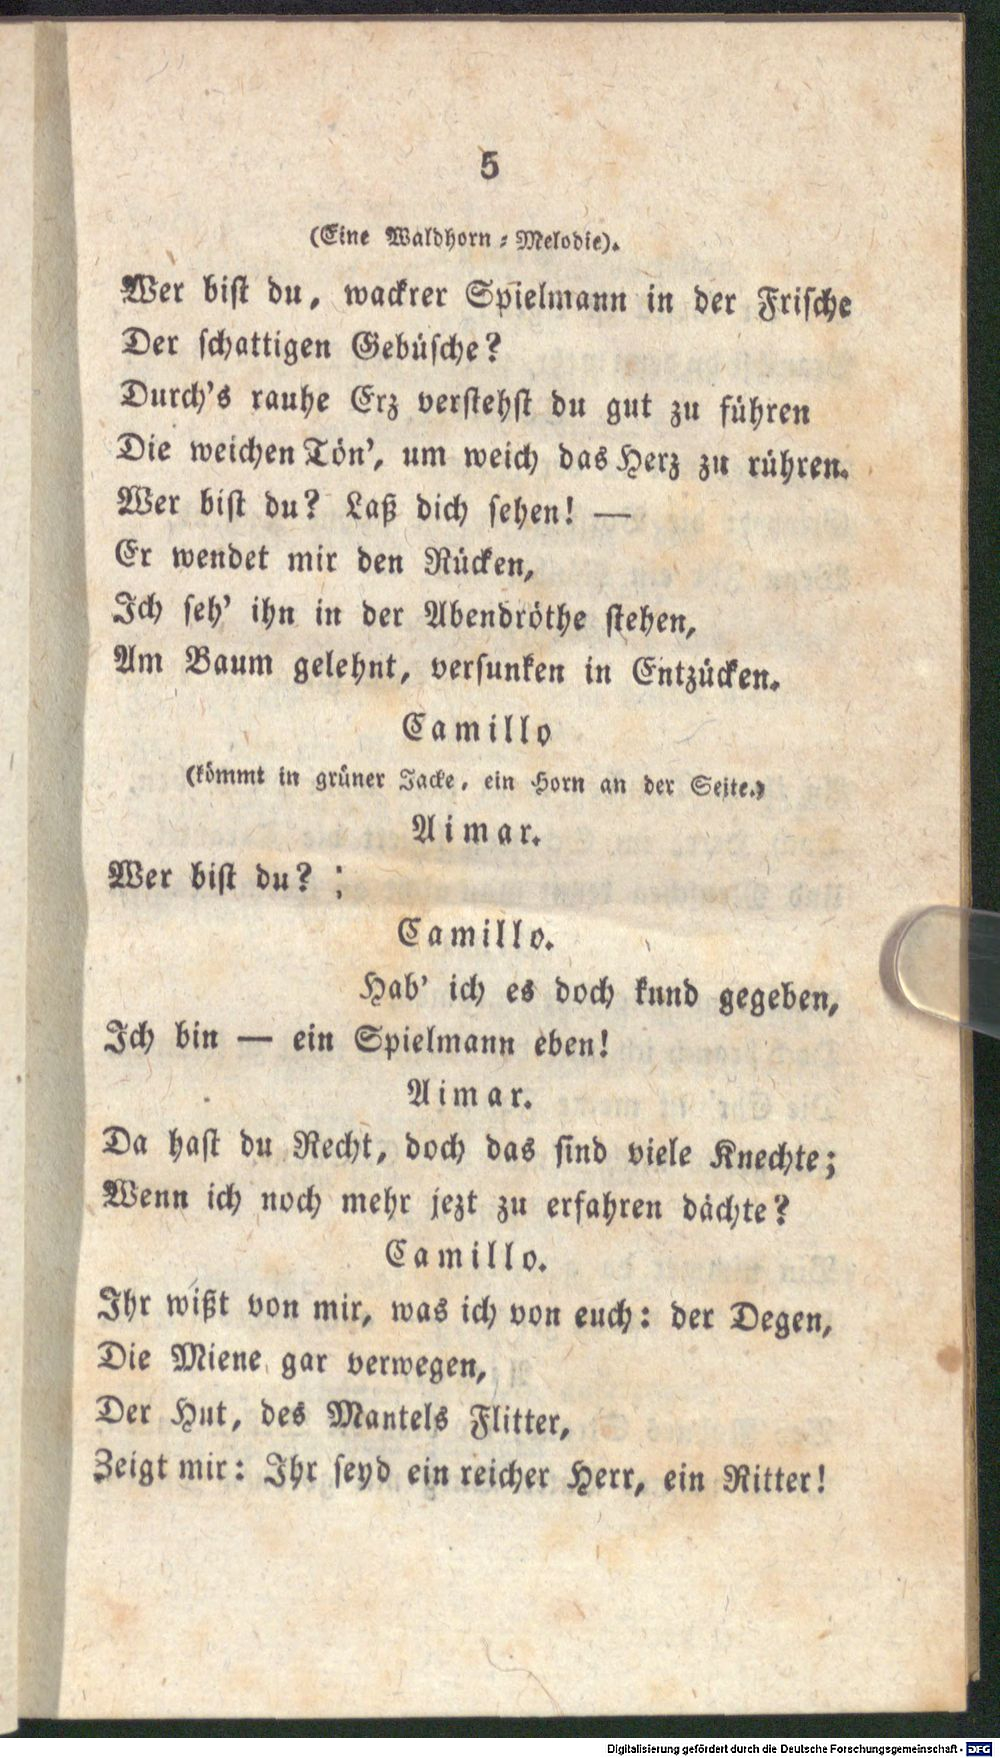 5
(Eine Waldhorn-Melodie).
Wer bist du, wackrer Spielmann in der Frische
Der schattigen Gebüsche?
Durch's rauhe Erz verstehst du gut zu führen
Die weichen Tön', um weich das Herz zu rühren.
Wer bist du? Laß dich sehen! —
Er wendet mir den Rücken,
Ich seh' ihn in der Abendröthe stehen,
Am Baum gelehnt, versunken in Entzücken.
Camillo
(kömmt in grüner Jacke, ein Horn an der Seite.)
Aimar.
Wer bist du? :
Camillo.
Hab' ich es doch kund gegeben,
Ich bin — ein Spielmann eben!
Aimar.
Da hast du Recht, doch das sind viele Knechte;
Wenn ich noch mehr jezt zu erfahren dächte?
Camillo.
Ihr wißt von mir, was ich von euch: der Degen,
Die Miene gar verwegen,
Der Hut, des Mantels Flitter,
Zeigt mir: Ihr seyd ein reicher Herr, ein Ritter!
Digitalisierung gefördert durch die Deutsche Forschungsgemeinschaft - DFG